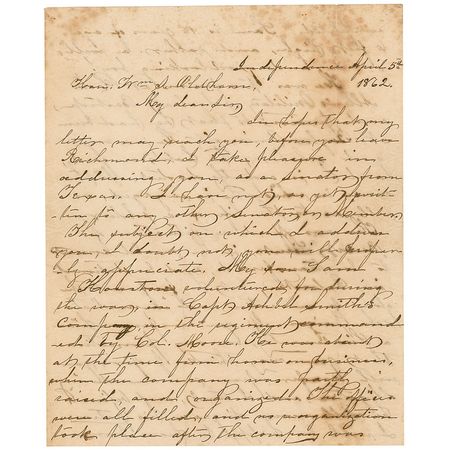 Independence April 5th
Hon. Wm S. Oldham, 1862.
My dear Sir,
In hopes that my
letter may reach you, before you leave
Richmond, I take pleasure in
addressing you, as a senator from
Texas. I have not as yet writ-
ten to any other senator or Member.
The subject on which I address
you, I doubt not, you will proper-
ly appreciate. My son Sam
Houston volunteered for during
the war, in Capt Ashbel Smith's
company in the regiment command-
ed by Col. Moore. He was absent
at the time from home on business,
when the company was partly
raised, and organized. The offices
were all filled, and no reorganization
took place after the company was